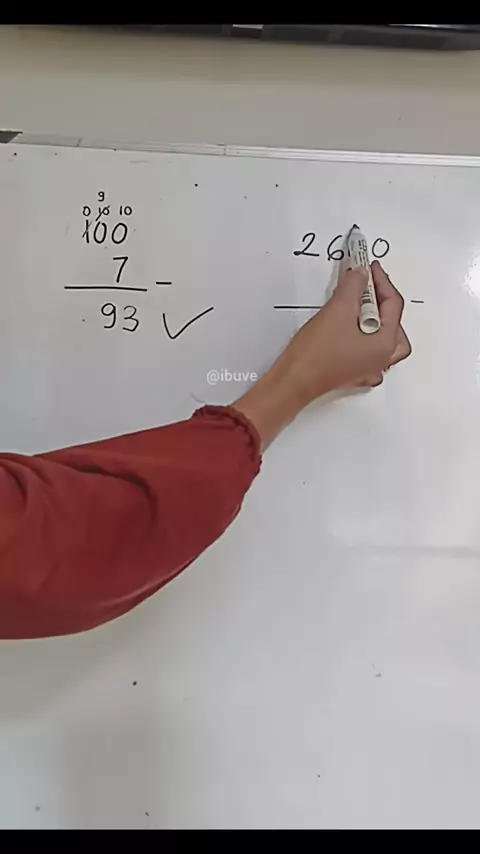 9
0 10 10
100
7 -
93 ✓
26 0
-
@ibuve